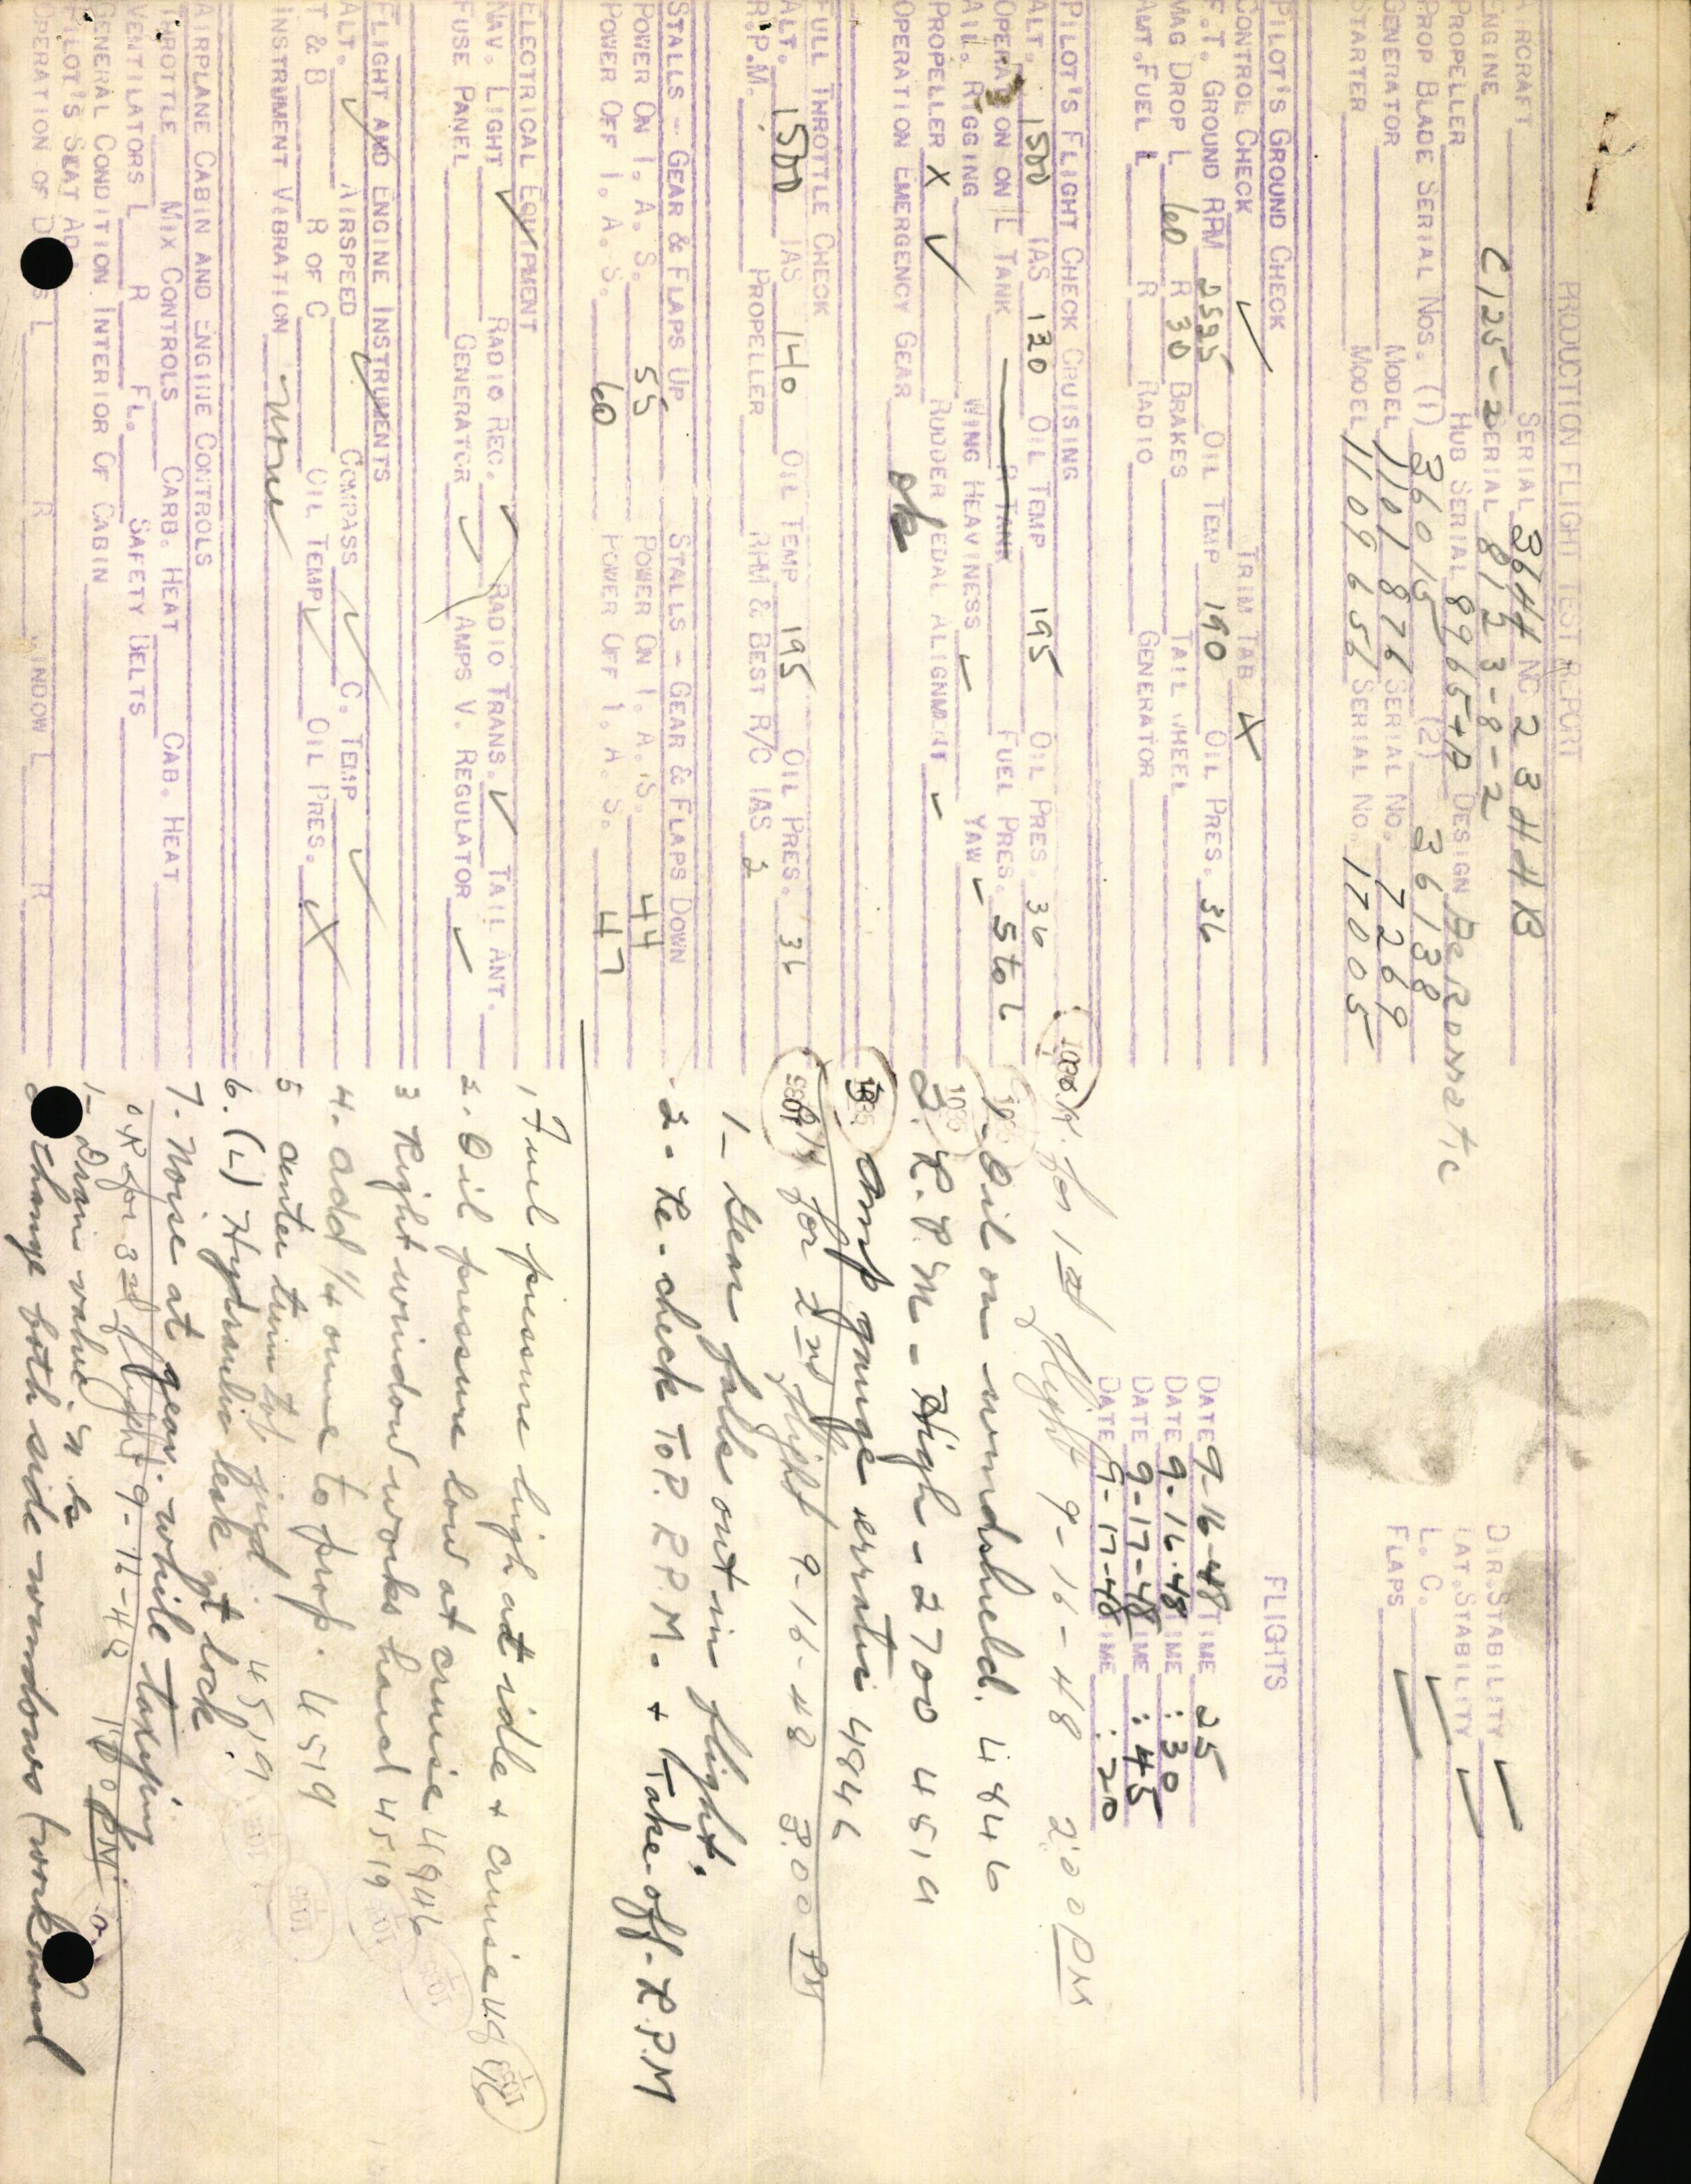 PRODUCTION FLIGHT TEST REPORT
AIRCRAFT SERIAL 3644 NC 2344B
ENGINE C125-2 SERIAL 8123-8-2
PROPELLER HUB SERIAL 8965+A DESIGN Aeromatic
PROP BLADE SERIAL NOS. (1) 36015 (2) 36138
GENERATOR MODEL 1101876 SERIAL NO. 7269
STARTER MODEL 1109656 SERIAL NO. 17005
DIR.STABILITY ✓
LAT.STABILITY ✓
L. C. ✓
FLAPS ✓
PILOT'S GROUND CHECK
CONTROL CHECK ✓ TRIM TAB X
F.T. GROUND RPM 2525 OIL TEMP 190 OIL PRES. 36
MAG DROP L 60 R 30 BRAKES TAIL WHEEL
AMT.FUEL L R RADIO GENERATOR
FLIGHTS
DATE 9-16-48 TIME 25
DATE 9-16-48 TIME :30
DATE 9-17-48 TIME :45
DATE 9-17-48 TIME :20
PILOT'S FLIGHT CHECK CRUISING
ALT. 1500 IAS 130 OIL TEMP 195 OIL PRES. 36
OPERATION ON L TANK R TANK FUEL PRES. 5 to 6
AIL. RIGGING WING HEAVINESS ✓ YAW ✓
PROPELLER X ✓ RUDDER PEDAL ALIGNMENT ✓
OPERATION EMERGENCY GEAR ok
FULL THROTTLE CHECK
ALT. 1500 IAS 140 OIL TEMP 195 OIL PRES. 36
R.P.M. PROPELLER RPM & BEST R/C IAS 2
STALLS - GEAR & FLAPS UP STALLS - GEAR & FLAPS DOWN
POWER ON I. A. S. 55 POWER ON I. A. S. 44
POWER OFF I. A. S. 60 POWER OFF I. A. S. 47
ELECTRICAL EQUIPMENT
NAV. LIGHT ✓ RADIO REC. ✓ RADIO TRANS. ✓ TAIL ANT.
FUSE PANEL GENERATOR ✓ AMPS V. REGULATOR ✓
FLIGHT AND ENGINE INSTRUMENTS
ALT. ✓ AIRSPEED ✓ COMPASS ✓ C. TEMP ✓
T & B R OF C OIL TEMP ✓ OIL PRES. X
INSTRUMENT VIBRATION None
AIRPLANE CABIN AND ENGINE CONTROLS
THROTTLE MIX CONTROLS CARB. HEAT CAB. HEAT
VENTILATORS L R FL. SAFETY BELTS
GENERAL CONDITION INTERIOR OF CABIN
PILOT'S SEAT
OPERATION OF L R WINDOW L R
for 1st flight 9-16-48 2:00 PM
1. Oil on windshield. 4846
2. R.P.M - High - 2700 4519
3. amp gauge erratic 4846
for 2nd flight 9-16-48 3.00 PM
1- Gear falls out in flight.
2- Re-check TOP. R.P.M. + Take-off-R.P.M
1 Fuel pressure high at idle + cruise
2. Oil pressure low at cruise 4946
3 Right window works hard 4519
4. add 1/4 ounce to prop. 4519
5 center trim tab 4519
6. (L) Hydraulic leak at lock.
7. Noise at gear. while taxiying
ok for 3rd flight 9-16-48
1- Drain valve
2 change both side windows (work hard